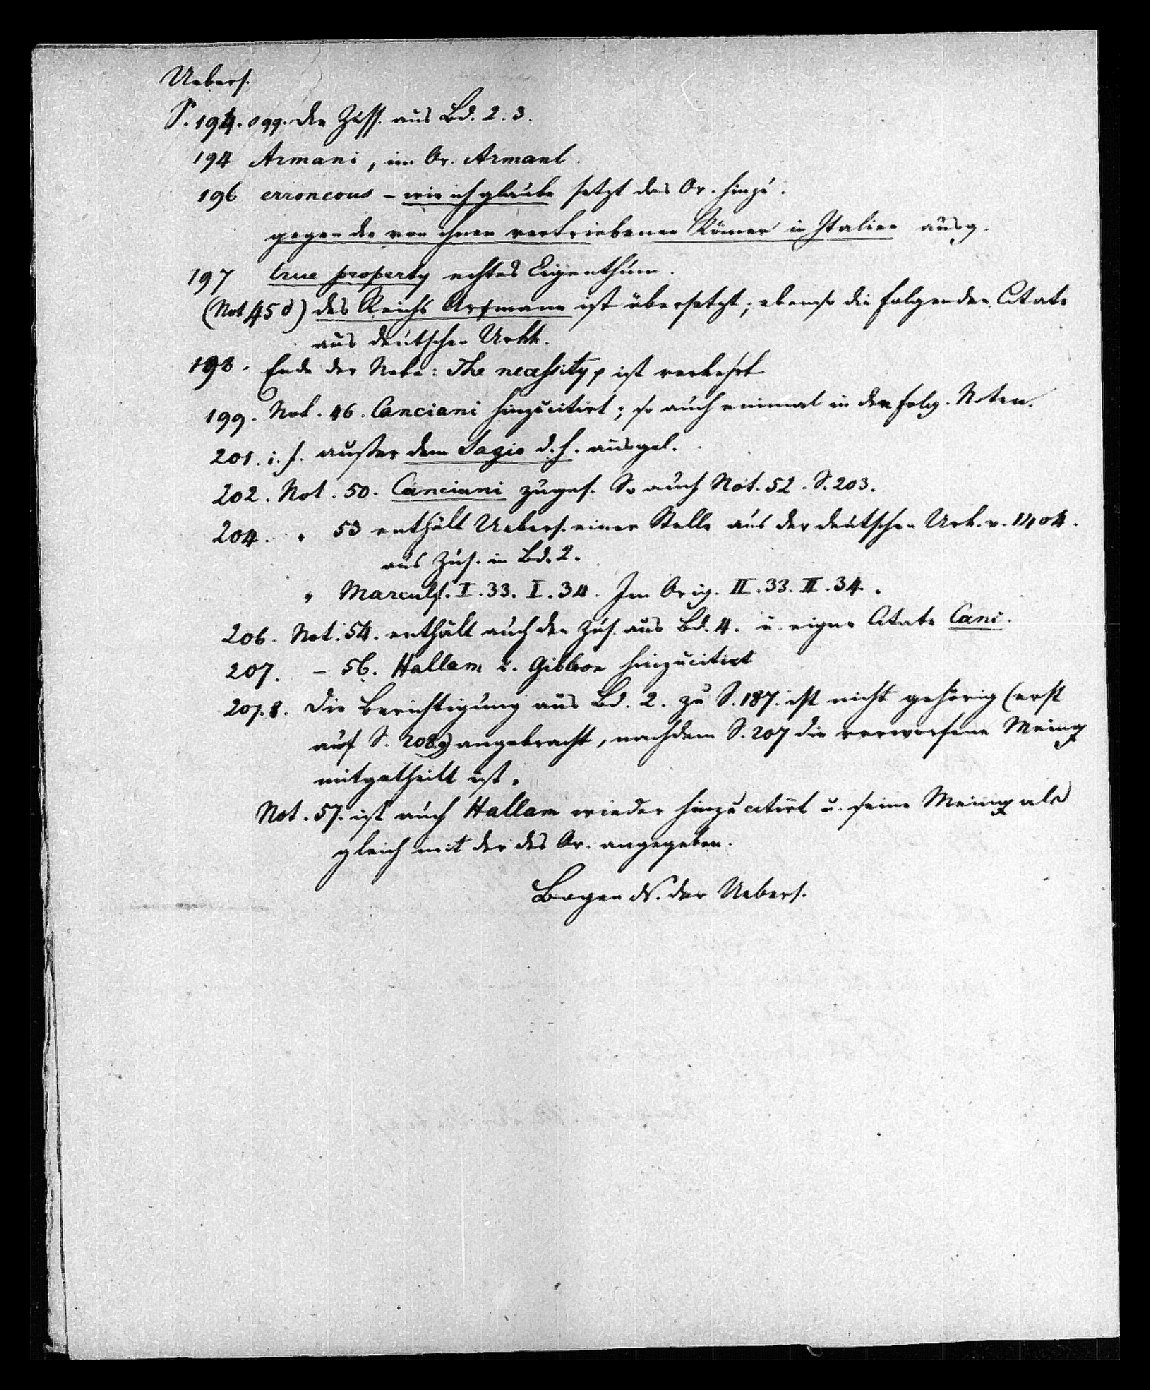 Uebers.
S. 194. sqq. die Zuss. aus Bd. 2. 3.
194 Armani, im Or. Armanl
196 erroneous – wie ich glaube setzt das Or. hinzu.
gegen die von ihnen vertriebenen Römer in Italien ausg.
197 true property echtes Eigenthum.
(Not 45 d) des Reichs Arimann ist übersetzt; ebenso die folgenden Citate
aus deutschen Urkk.
198. Ende der Note: The necessity, ist verkehrt
199. Not. 46. Canciani hinzucitirt; so auch einmal in den folg. Noten.
201. i. f. außer dem d. h. ausgel.
202. Not. 50. Canciani zuges. So auch Not. 52. S. 203.
204. " 53 enthält Uebers. einer Stelle aus der deutschen Urk. v. 1404.
aus Zus. in Bd. 2.
" Marculf. I. 33. I. 34. Im Orig. II. 33. II. 34.
206. Not. 54. enthält auch den Zus. aus Bd. 4. u. eigne Citate Canc.
207. – 56. Hallam u. Gibbon hinzucitirt
207. 8. Die Berichtigung aus Bd. 2. zu S. 187. ist nicht gehörig (erst
auf S. 208) angebracht, nachdem S. 207 die verworfene Meinung
mitgetheilt ist.
Not. 57. ist auch Hallam wieder hinzucitirt u. seine Meinung als
gleich mit der des Or. angegeben.
Bogen der Uebers.